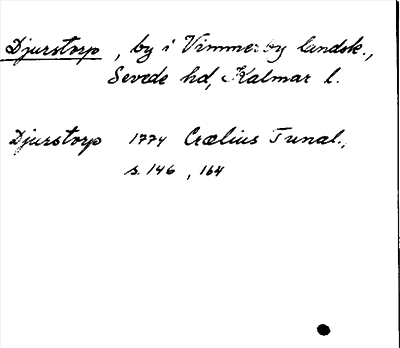 Djurstorp, by i Vimmerby landsk.,
Sevede hd, Kalmar l.
Djurstorp 1774 Crælius Tunal.,
s. 146, 164